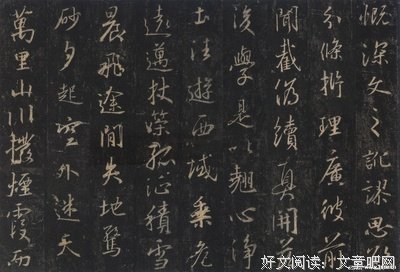 慨深文之訛謬思欲
分條析理廣彼前
聞截偽續真開茲
後學是以翹心淨
土法遊西域乘危
遠邁杖策孤征積雪
晨飛途間失地驚
砂夕起空外迷天
萬里山川撥煙霞而
好文阅读：|文章吧网